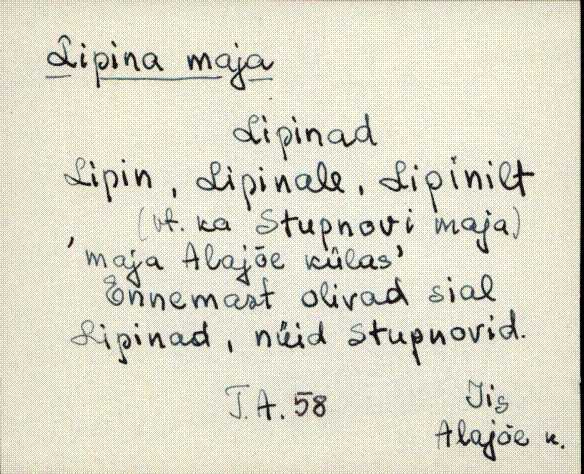 Lipina maja
Lipinad
Lipin, Lipinale, Lipinilt
(vt. ka Stupnovi maja)
'maja Alajõe külas'
Ennemast olivad sial
Lipinad, nüid Stupnovid.
T.A. 58
Iis
Alajõe k.